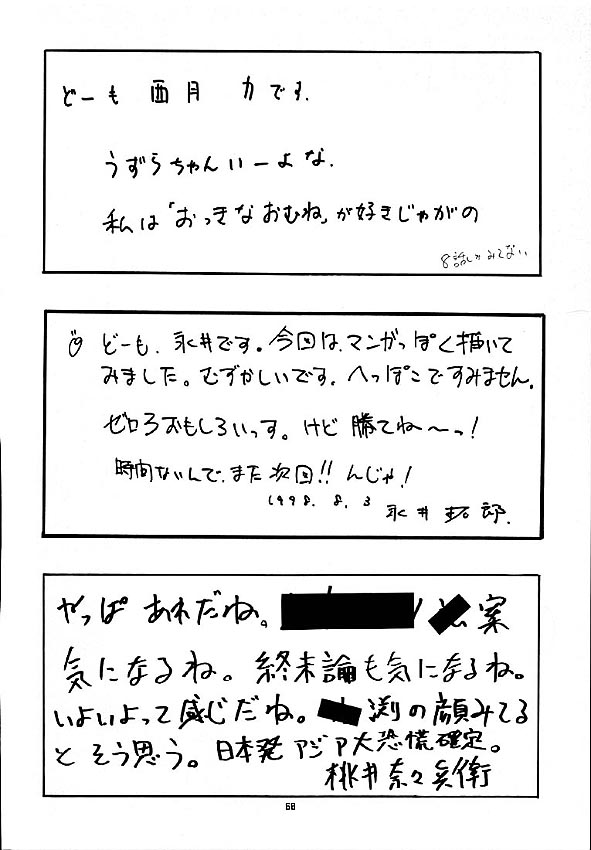 どーも 酉月 力です.
うずらちゃんいーよな.
私は「おっきなおむね」が好きじゃがの
8話しかみてない
どーも、永井です。今回は、マンガっぽく描いて
みました。むずかしいです。へっぽこですみません.
ゼロ3おもしろいっす。けど 勝てね〜っ!
時間ないんで、また次回!! んじゃ!
1998. 8. 3
永井 郎.
やっぱ あれだね。 案
気になるね。終末論も気になるね。
いよいよって感じだね。 渕の顔みてる
とそう思う。日本発アジア大恐慌確定。
桃井奈々兵衛
68